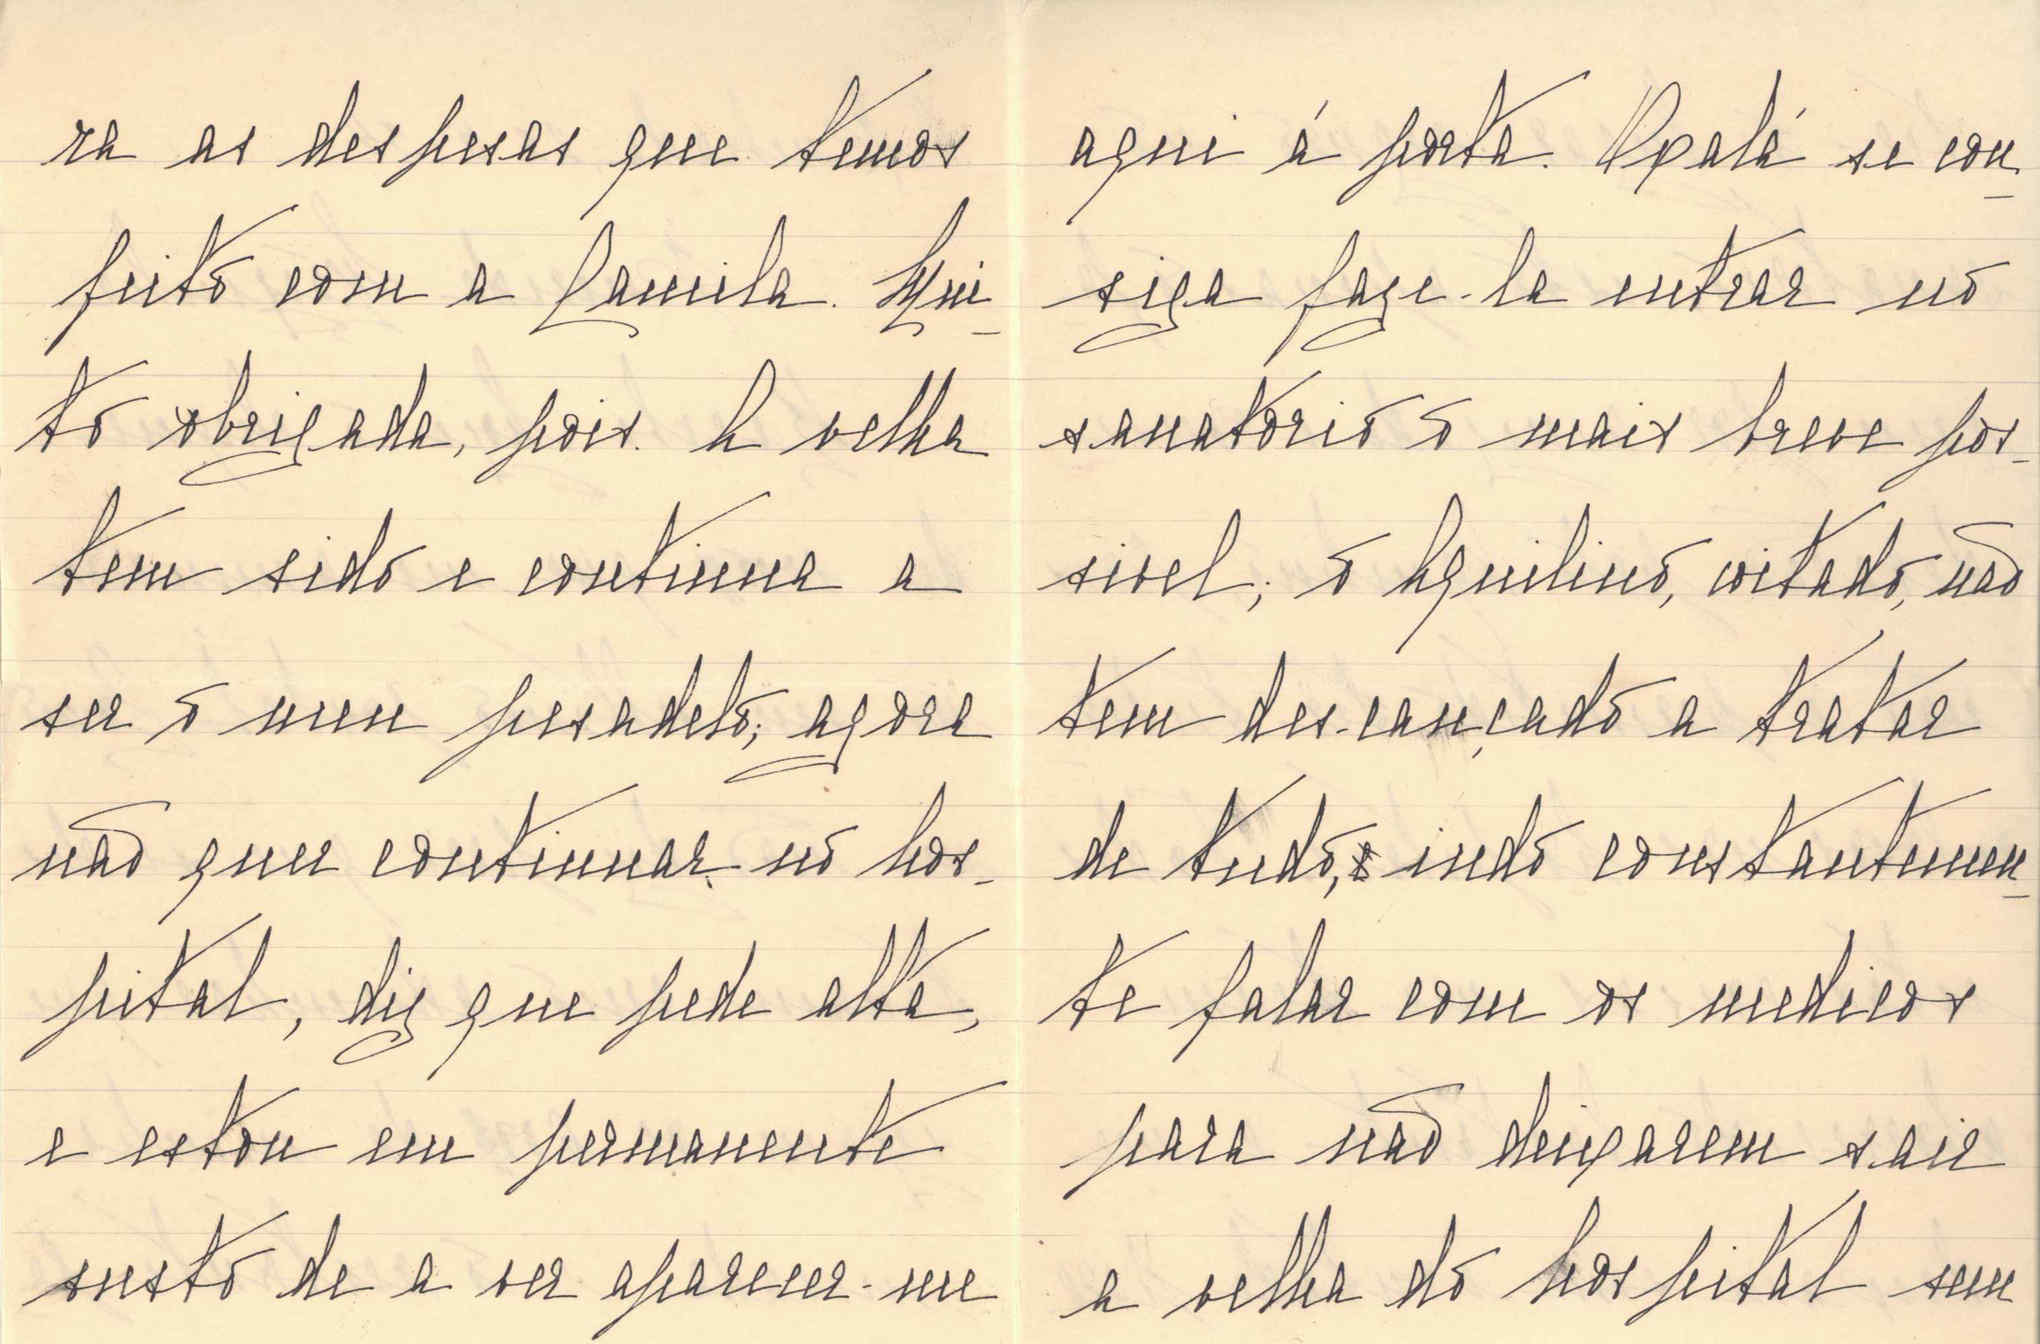 ra as despesas que temos
feito com a Camila. Mui_
to obrigada, pois. A velha
tem sido e continua a
ser o meu pesadelo; agora
não quer continuar no hos_
pital, diz que pede alta,
e estou em permanente
susto de a ver aparecer-me
aqui á porta. Oxalá se con_
siga faze-la entrar no
sanatorio o mais breve pos_
sivel; o Aquilino, coitado, não
tem des-cançado a tratar
de tudo, indo constantemen_
te falar com os medicos
para não deixarem sair
a velha do hospital sem